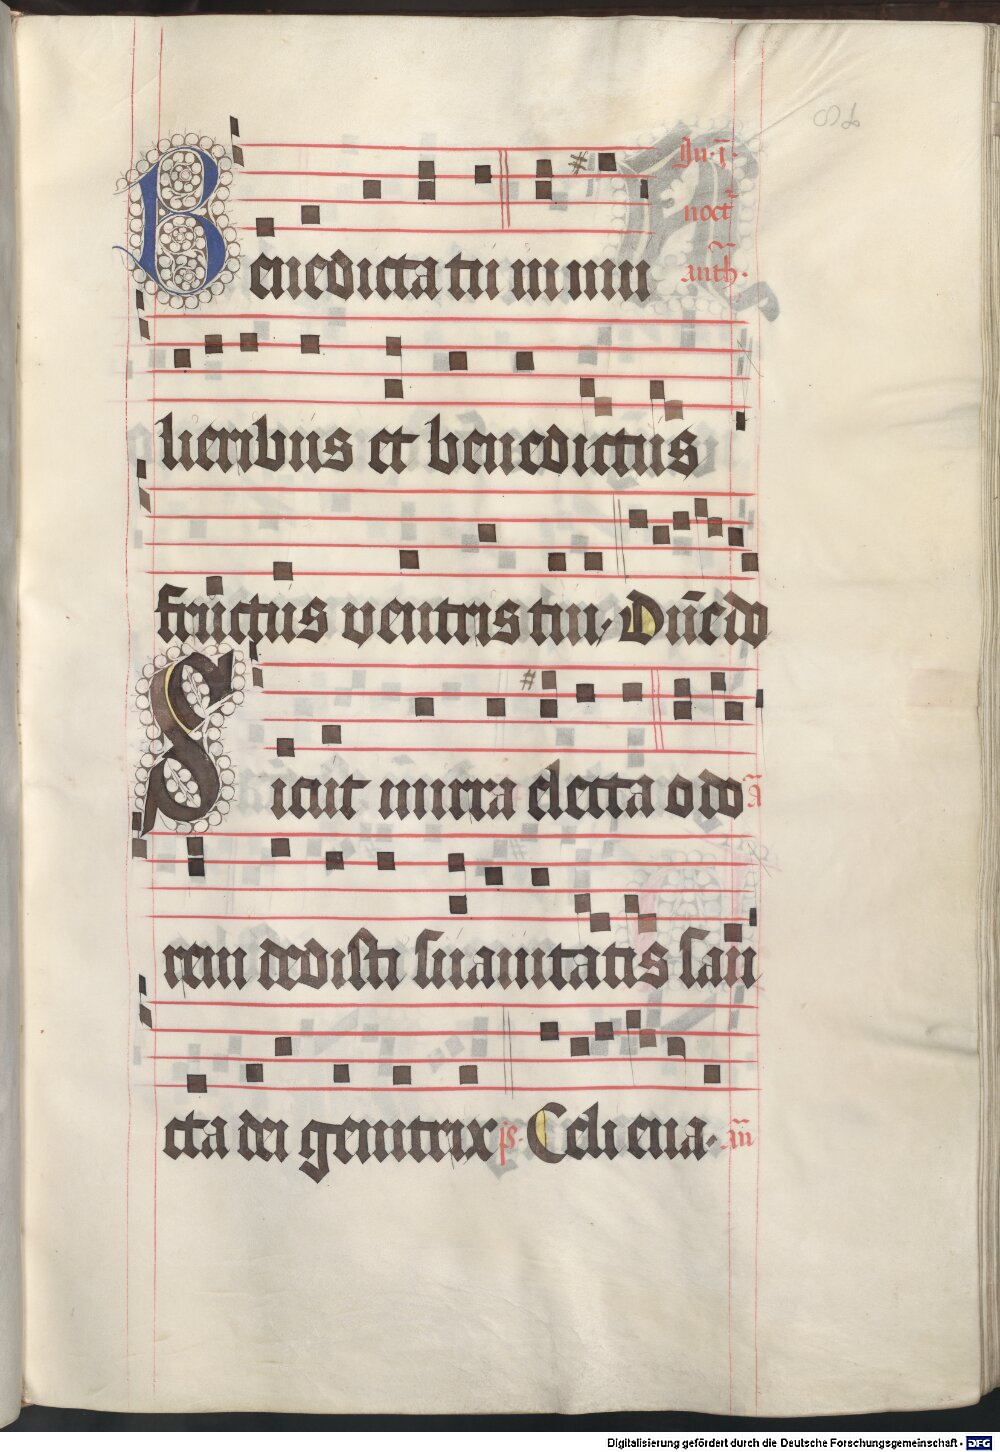 86
In · i ·
noct͛
anth ·
Benedicta tu in mu
lieribus et benedictus
fructus ventris tui · Dn̄e do
Sicut mirra electa odo a̅
rem dedisti suauitatis san
cta dei genitrix ps · Celi ena · an̄
Digitalisierung gefördert durch die Deutsche Forschungsgemeinschaft - DFG